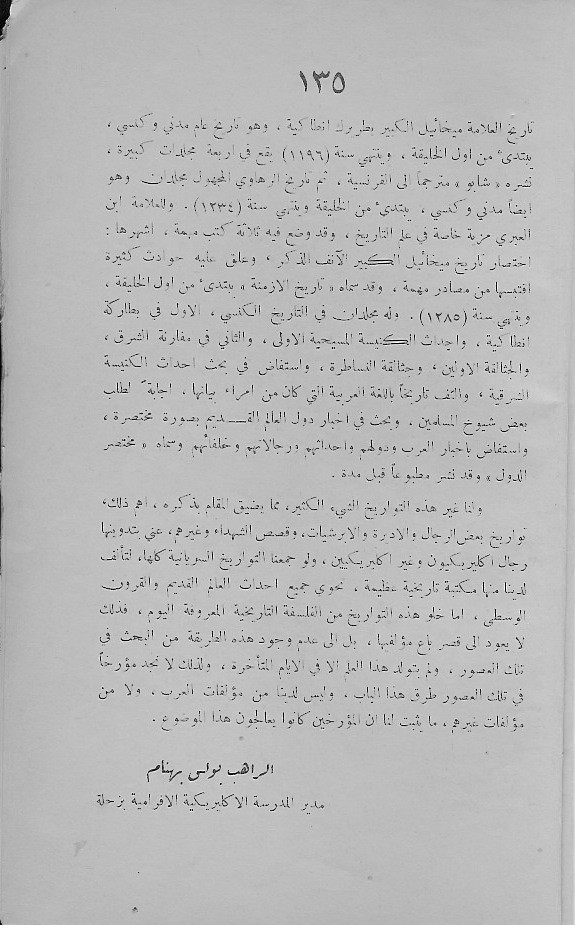 ١٣٥
تاريخ العلامة ميخائيل الكبير بطريرك انطاكية ، وهو تاريخ عام مدني وكنسي ،
يبتدىء من اول الخليقة ، وينتهي سنة (١١٩٦) يقع في اربعة مجلدات كبيرة ،
نشره « شابو » مترجماً الى الفرنسية ، ثم تاريخ الرهاوي المجهول مجلدان وهو
ايضاً مدني وكنسي ، يبتدىء من الخليقة وينتهي سنة (١٢٣٤) . وللعلامة ابن
العبري مزية خاصة في علم التاريخ ، وقد وضع فيه ثلاثة كتب مهمة ، اشهرها :
اختصار تاريخ ميخائيل الكبير الآنف الذكر ، وعلق عليه حوادث كثيرة
اقتبسها من مصادر مهمة ، وقد سماه « تاريخ الازمنة » يبتدىء من اول الخليقة ،
وينتهي سنة (١٢٨٥) . وله مجلدان في التاريخ الكنسي ، الاول في بطاركة
انطاكية ، واحداث الكنيسة المسيحية الاولى ، والثاني في مفارنة الشرق ،
والجثالقة الاولين ، وجثالقة النساطرة ، واستفاض في بحث احداث الكنيسة
الشرقية ، والّف تاريخاً باللغة العربية التي كان من امراء بيانها ، اجابةً لطلب
بعض شيوخ المسلمين ، وبحث في اخبار دول العالم القـــديم بصورة مختصرة ،
واستفاض باخبار العرب ودولهم واحداثهم ورجالاتهم وخلفائهم وسماه « مختصر
الدول » وقد نشر مطبوعاً قبل مدة .
ولنا غير هذه التواريخ الشيء الكثير، مما يضيق المقام بذكره ، اهم ذلك،
تواريخ بعض الرجال والاديرة والابرشيات، وقصص الشهداء وغيرهم، عني بتدوينها
رجال اكليريكيون وغير اكليريكيين ، ولو جمعنا التواريخ السريانية كلها، لتألف
لدينا منها مكتبة تاريخية عظيمة ، تحوي جميع احداث العالم القديم والقرون
الوسطى ، اما خلو هذه التواريخ من الفلسفة التاريخية المعروفة اليوم ، فذلك
لا يعود الى قصر باع مؤلفيها ، بل الى عدم وجود هذه الطريقة من البحث في
تلك العصور ، ولم يتولد هذا العلم الا في الايام المتأخرة ، ولذلك لا نجد مؤرخاً
في تلك العصور طرق هذا الباب ، وليس لدينا من مؤلفات العرب ، ولا من
مؤلفات غيرهم ، ما يثبت لنا ان المؤرخين كانوا يعالجون هذا الموضوع .
الراهب بولس بهنام
مدير المدرسة الاكليريكية الافرامية بزحلة